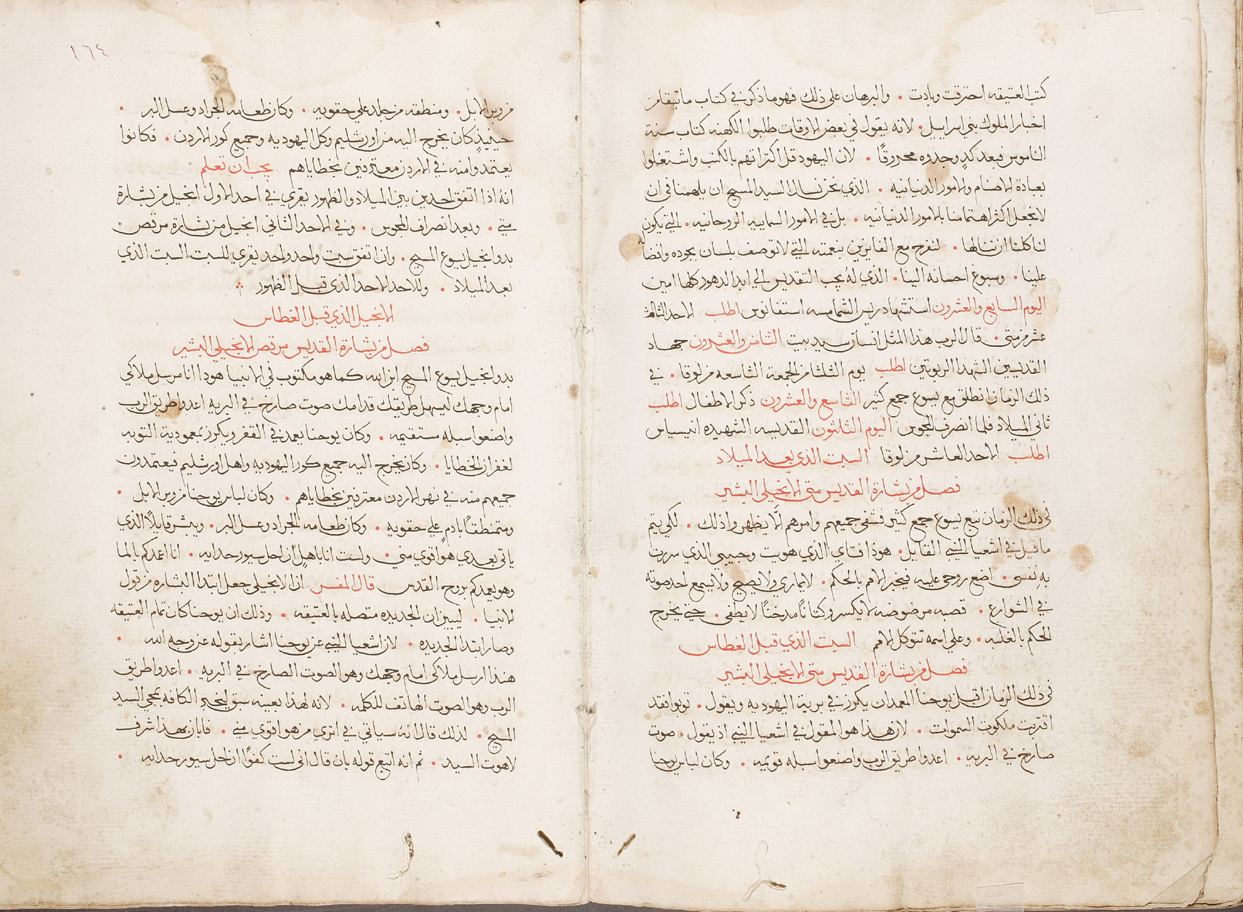 كتب العتيقه احترقت وبادت . والبرهان على ذلك فهو ما ذكر في كتاب ما تبقا من
اخبار الملوك بني اسراييل . لانه يقول في بعض الاوقات طلبوا الكهنه كتاب سنة
الناموس فبعد كد وجدوه محروقًا . لان اليهود قل اكتراثهم بالكتب واشتغلوا
بعبادة الاصنام والامور الدنيانيه . الذي نحن نسال السيد المسيح ان يلهمنا في ان
لا نجعل اكثر اهتمامنا بالامور الدنيانيه . بل في الامور السماييه الروحانيه . التي يكون
لنا كلنا ان ننالها . لنفرح مع الفايزين بنعمته التي لا توصف بلسان بجوده وافضاله
علينا . وسبوغ احسانه الينا . الذي له يجب التقديس الي ابد الدهور كلها امين
اليوم السابع والعشرون استشهاد ريس الشمامسه استفانوس اطلب الاحد الثالث
عشر من متى . قال الرب هذا المثل انسان سيد بيت الثامن والعشرون جهاد
القديسين الشهدا الربوتين اطلب يوم الثلثا من الجمعة التاسعه من لوقا . في
ذلك الزمان انطلق مع يسوع جمع كثير التاسع والعشرون ذكر الاطفال اطلب
ثاني الميلاد فلما انصرف المجوس اليوم الثلثون القديسه الشهيده انيسياس
اطلب الاحد العاشر من لوقا السبت الذي بعد الميلاد
فصل من بشارة القديس متى الانجيلي البشير
في ذلك الزمان تبع يسوع جمع كثير فشفى جميعهم وامرهم الّا يظهروا ذلك . لكي يتم
ما قيل في اشعيا النبي القايل . هوذا فتاي الذي هويت وحبيبي الذي سررت
به نفسي . اضع روحي عليه فيخبر الامم بالحكم . لا يماري ولا يصيح ولا يسمع احد صوته
في الشوارع . قصبه مرضوضه لا يكسر وكتانًا مدخنًا لا يطفى . حتى يخرج
الحكم بالغلبه . وعلى اسمه تتوكل الامم السبت الذي قبل الغطاس
فصل من بشارة القديس متى الانجيلي البشير
في ذلك الزمان اقبل يوحنا المعمدان يكرز في برية اليهوديه ويقول . توبوا فقد
اقتربت ملكوت السموات . لان هذا هو المقول في اشعيا النبي اذ يقول . صوت
صارخ في البريه . اعدوا طريق الرب واصنعوا سبله قويمه . وكان لباس يوحنا
١٦٤
من وبر الابل . ومنطقه من جلد على حقويه . وكان طعامه الجراد وعسل البر .
حينيذٍ كان يخرج اليه من اورشليم وكل اليهوديه وجميع كور الاردن . فكانوا
يعتمدوا منه في الاردن معترفين بخطاياهم يجب ان تعلم
انه اذا اتفق احدين بين الميلاد والظهور يقري في احد الاول انجيل من بشارة
متى . وبعد انصراف المجوس . وفي الاحد الثاني انجيل من بشارة مرقص
بدو انجيل يسوع المسيح . وان اتفق سبت واحد واحد يقري للسبت السبت الذي
بعد الميلاد . وللاحد الاحد الذي قبل الظهور
الانجيل الذي قبل الغطاس
فصل من بشارة القديس مرقص الانجيلي البشير
بدو انجيل يسوع المسيح ابن الله كما هو مكتوب في الانبيا هودا انا مرسل ملاكي
امام وجهك ليسهل طريقك قدامك صوت صارخ في البريه اعدوا طريق الرب
واصنعوا سبله مستقيمه . وكان يوحنا يعمد في القفر ويكرز بمعمودية التوبه
لغفران الخطايا . وكان يخرج اليه جميع كور اليهوديه واهل اورشليم فيعتمدون
جميعهم منه في نهر الاردن معترفين بخطاياهم . وكان لباس يوحنا من وبر الابل .
ومتمنطقًا بادم على حقويه . وكان طعامه الجراد وعسل البر . ويبشر قايلاً الذي
ياتي بعدي هو اقوى منى . ولست انا باهلٍ ان احل سيور حذايه . انا اعمدكم بالما
وهو يعمدكم بروح القدس قال المفسر ان الانجيلي جعل ابتدا البشاره من قول
الانبيا . ليبين ان الجديده متصله بالعتيقه . وذلك ان يوحنا كان تمام العتيقه
وصار ابتدا الجديده . لان اشعيا النبي عن يوحنا اشار بقوله عن وجه الله .
هنذا ارسل ملاكي امام وجهك وهو الصوت الصارخ في البريه . اعدوا طريق
الرب وهو الصوت الهاتف للكلمه . لانه لهذا بعينه سبق ليخبر الكافه بمجي السيد
المسيح . لذلك قال انه سياتي في اثري من هو اقوى منى . فابان بهذا شرف
لاهوت السيد . ثم انه اتبع قوله بان قال اني لست كفوًا ان احل سيور حذايه .